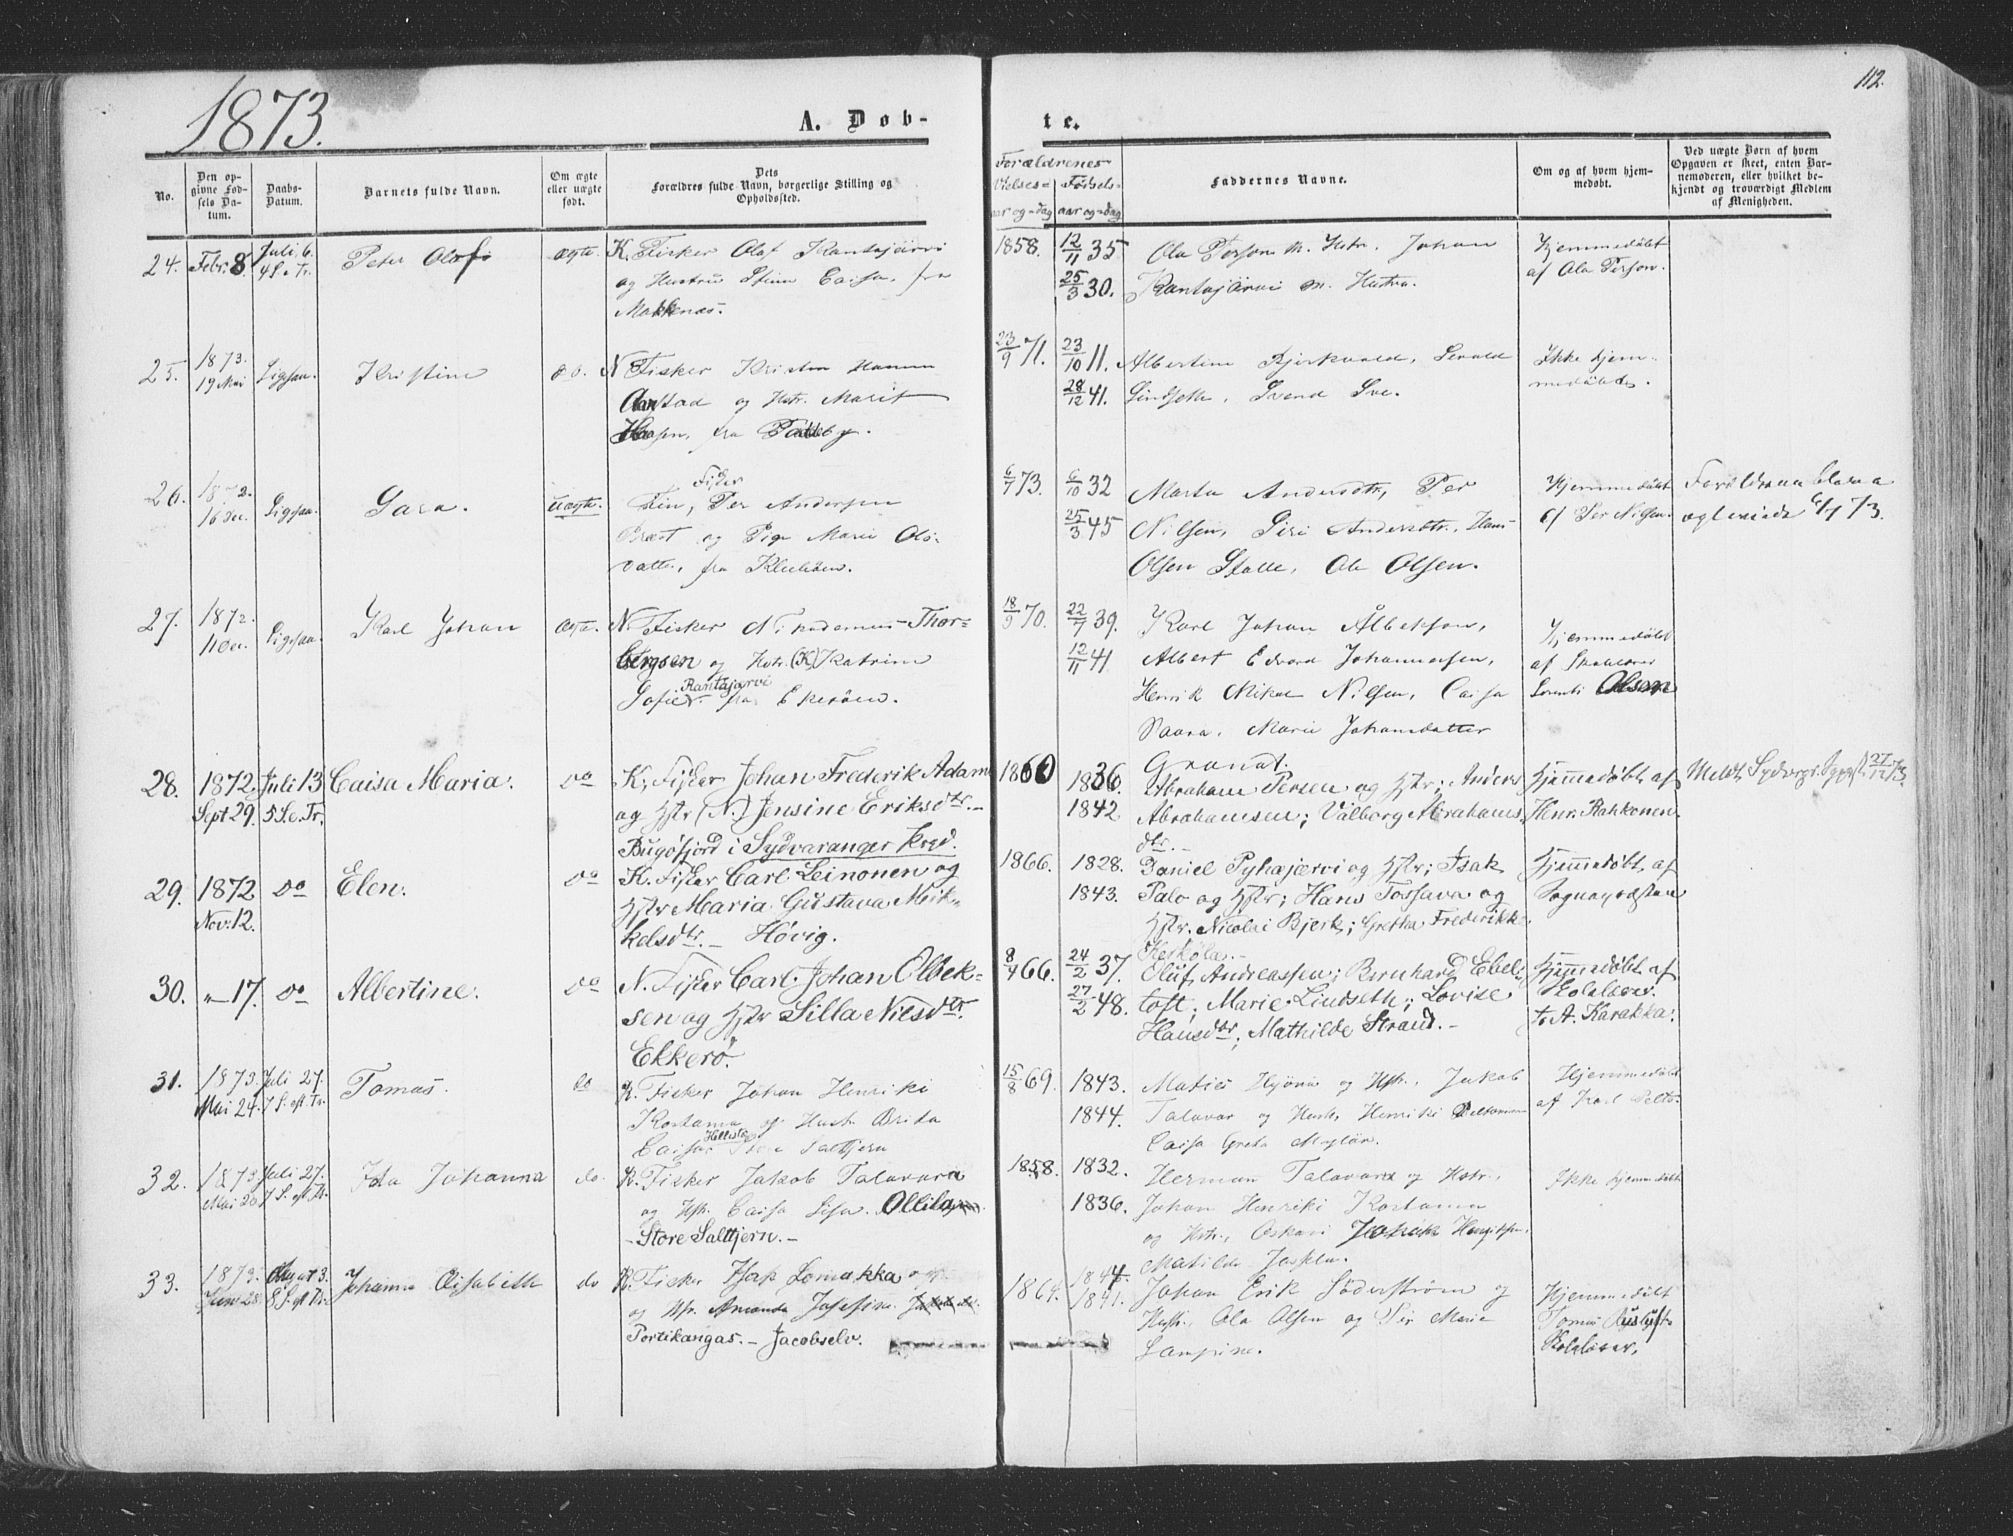 112.
1873.
A. Døb-
te.
No.
Den opgivne Fødsels Datum.
Daabs-Datum.
Barnets fulde Navn.
Om ægte eller uægte født.
Dets Forældres fulde Navn, borgerlige Stilling og Opholdssted.
Forældrenes
Vielses- aar og -dag
Fødsels- aar og -dag
Faddernes Navne.
Om og af hvem hjemmedøbt.
Ved uægte Børn af hvem Opgaven er skeet, enten Barnemoderen, eller hvilket bekjendt og troværdigt Medlem af Menigheden.
24. Febr. 8 Juli 6. Peter Olaf ægte. K. Fisker Olaf Rantajärvi
4 S. e. Tr. og Hustru Stina Caisa, fra
Makkenæs.
1858. 12/11 35 Ola Person m. Hstr. Johan
25/3 30. Rantajärvi m. Hustru.
Hjemmedøbt
af Ola Person.
25. 1873. 19 Mai Ligesaa. Kristine do. N Fisker Kristen Hansen
Aarstad og Hstr. Marit
Hansen, fra Vadsby.
23/9 71. 23/10 11. Albertine Bjerkvold, Sevald
28/12 41. Lindseth, Svend Sve.
Ikke hjem-
medøbt.
26. 1872. 16 Dec. Ligesaa. Sara. uægte. Fisker
Fin, Per Andersen
Bræt og Pige Marie Ols-
datter, fra Klubben.
6/7 73. 6/10 32 Marta Andersdtr, Per
25/3 45 Nilsen, Siri Andersdtr., Hans
Olsen Stalle, Ole Olsen.
Hjemmedøbt
af Per Nilsen.
Forældrene
6/7 73.
27. 1872. 11 Dec. Ligesaa. Karl Johan ægte. N. Fisker Nikodemus Thor-
bergsen og Hstr. (K) Katrine
Rantajærvi
Sofie fra Ekerøen.
18/9 70. 22/7 39. Karl Johan Albertson,
12/11 41 Albert Edvard Johannesen,
Henrik Mikal Nilsen, Caisa
Vaara, Marie Johansdatter
Grandt.
Hjemmedøbt
af Skolelærer
Lorents Olsen
28. 1872 Sept 29. Juli 13 5 S. e. Tr. Caisa Maria. do K. Fisker Johan Frederik Adam
og Hstr (N.) Jensine Eriksdtr. -
Bugøfjord i Sydvaranger Præd.
1860 1836. Abraham Persen og Hstr; Anders
1842 Abrahamsen; Valborg Abrahams-
dtr. -
Hjemmedøbt af
Henr. Bakkonen.
Meldt Sydvgr. 27/12 73.
29. 1872 Nov. 12. do Elen. do K. Fisker Carl Leinonen og
Hstr Maria Gustava Mik-
kelsdtr. - Høvig.
1866. 1828. Daniel Pyhæjærvi og Hstr; Isak
1843. Palo og Hstr; Hans Tossava og
Hstr. Nicolai Bjerk; Gretha Frederikke
Keskola. -
Hjemmedøbt af
Sognepræsten
30. " 17. do Albertine. do N. Fisker Carl Johan Olbek-
sen og Hstr Silla Nilsdtr.
Ekkerø.
8/4 66. 24/2 37. Oluf Andreassen; Bernhard Ebel-
27/2 48. toft; Marie Lindseth; Lovise
Hansdtr; Mathilde Strand. -
Hjemmedøbt af
Skolelærer
A. Karakka.
31. 1873. Mai 24. Juli 27. 7 S. eft. Tr. Tomas. do K. Fisker Johan Henriki
Kostamo og Hustr. Brita
Caisa Store Saltjern
15/8 69. 1843. Maties Hjönä og Hstr., Jakob
1844. Talavar og Hustr, Henriki Peltomaa
Caisa Greta
Hjemmedøbt
af Karl Pelto.
32. 1873. Mai 20 Juli 27. 7 S. eft. Tr. Ida Johanna do. K. Fisker Jakob Talavara
og Hstr. Caisa Lisa
- Store Saltjern. -
1858. 1832. Herman Talavara og Hstr.,
1836. Johan Henriki Kostamo
og Hstr., Oskari
Matilde
Ikke hjemmedøbt
33. 1873. Juni 28 August 3. 8 S. eft Tr. Johanna Elisabeth do K. Fisker Isak Lomakka
og Hstr. Amanda Josefine
Portikangas. - Jacobselv.
1864. 1844. Johan Erik Söderström og
1841. Hustr., Ola Olsen og Per Marie
Lampine.
Hjemmedøbt
Skolelærer.